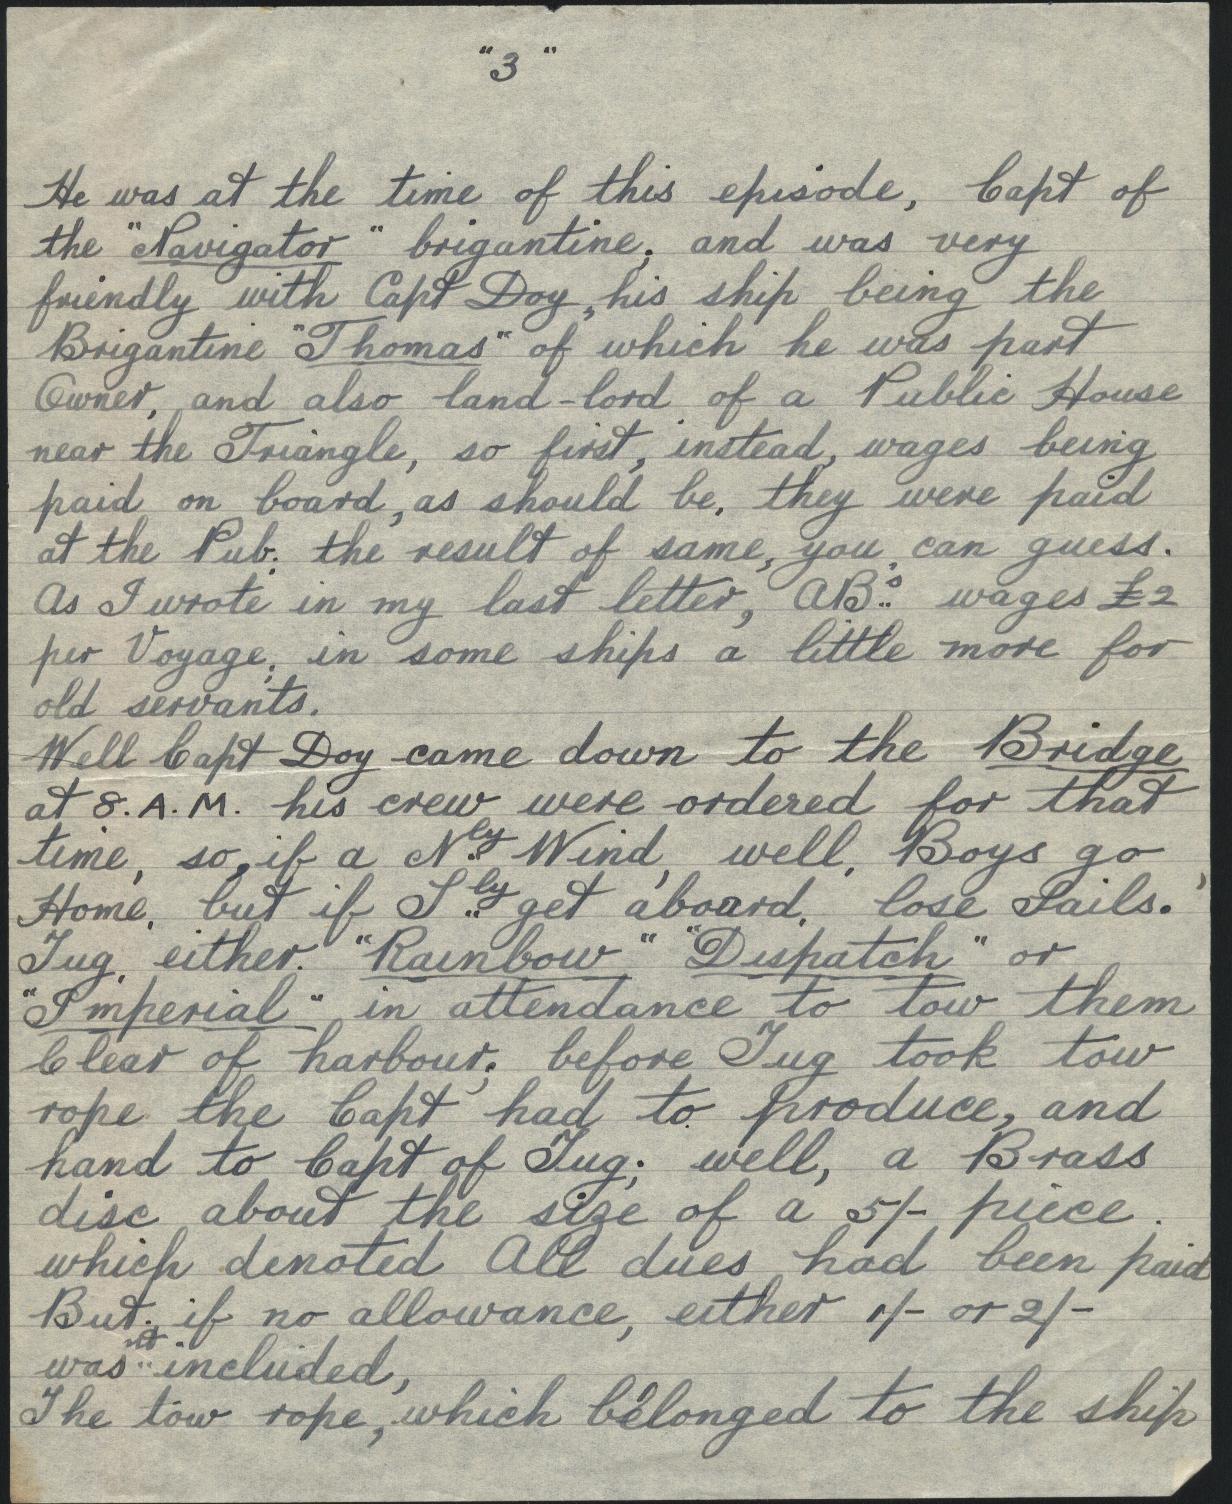 "3"
He was at the time of this episode, Capt of
the "Navigator" brigantine; and was very
friendly with Capt Doy, his ship being the
Brigantine "Thomas" of which he was part
Owner, and also land-lord of a Public House
near the Triangle, so first, instead, wages being
paid on board, as should be, they were paid
at the Pub; the result of same, you, can guess.
As I wrote in my last letter, AB.s wages £2
per Voyage; in some ships a little more for
old servants.
Well Capt Doy came down to the Bridge,
at 8.A.M. his crew were ordered for that
time, so, if a N.ly Wind, well, Boys go
Home, but if S.ly get aboard, lose Sails.
Tug, either. "Rainbow" "Dispatch" or
"Imperial" in attendance to tow them
Clear of harbour; before Tug took tow
rope the Capt had to produce, and
hand to Capt of Tug; well, a Brass
disc about the size of a 5/- piece.
which denoted All dues had been paid
But; if no allowance, either 1/- or 2/-
was it included,
The tow rope, which belonged to the ship